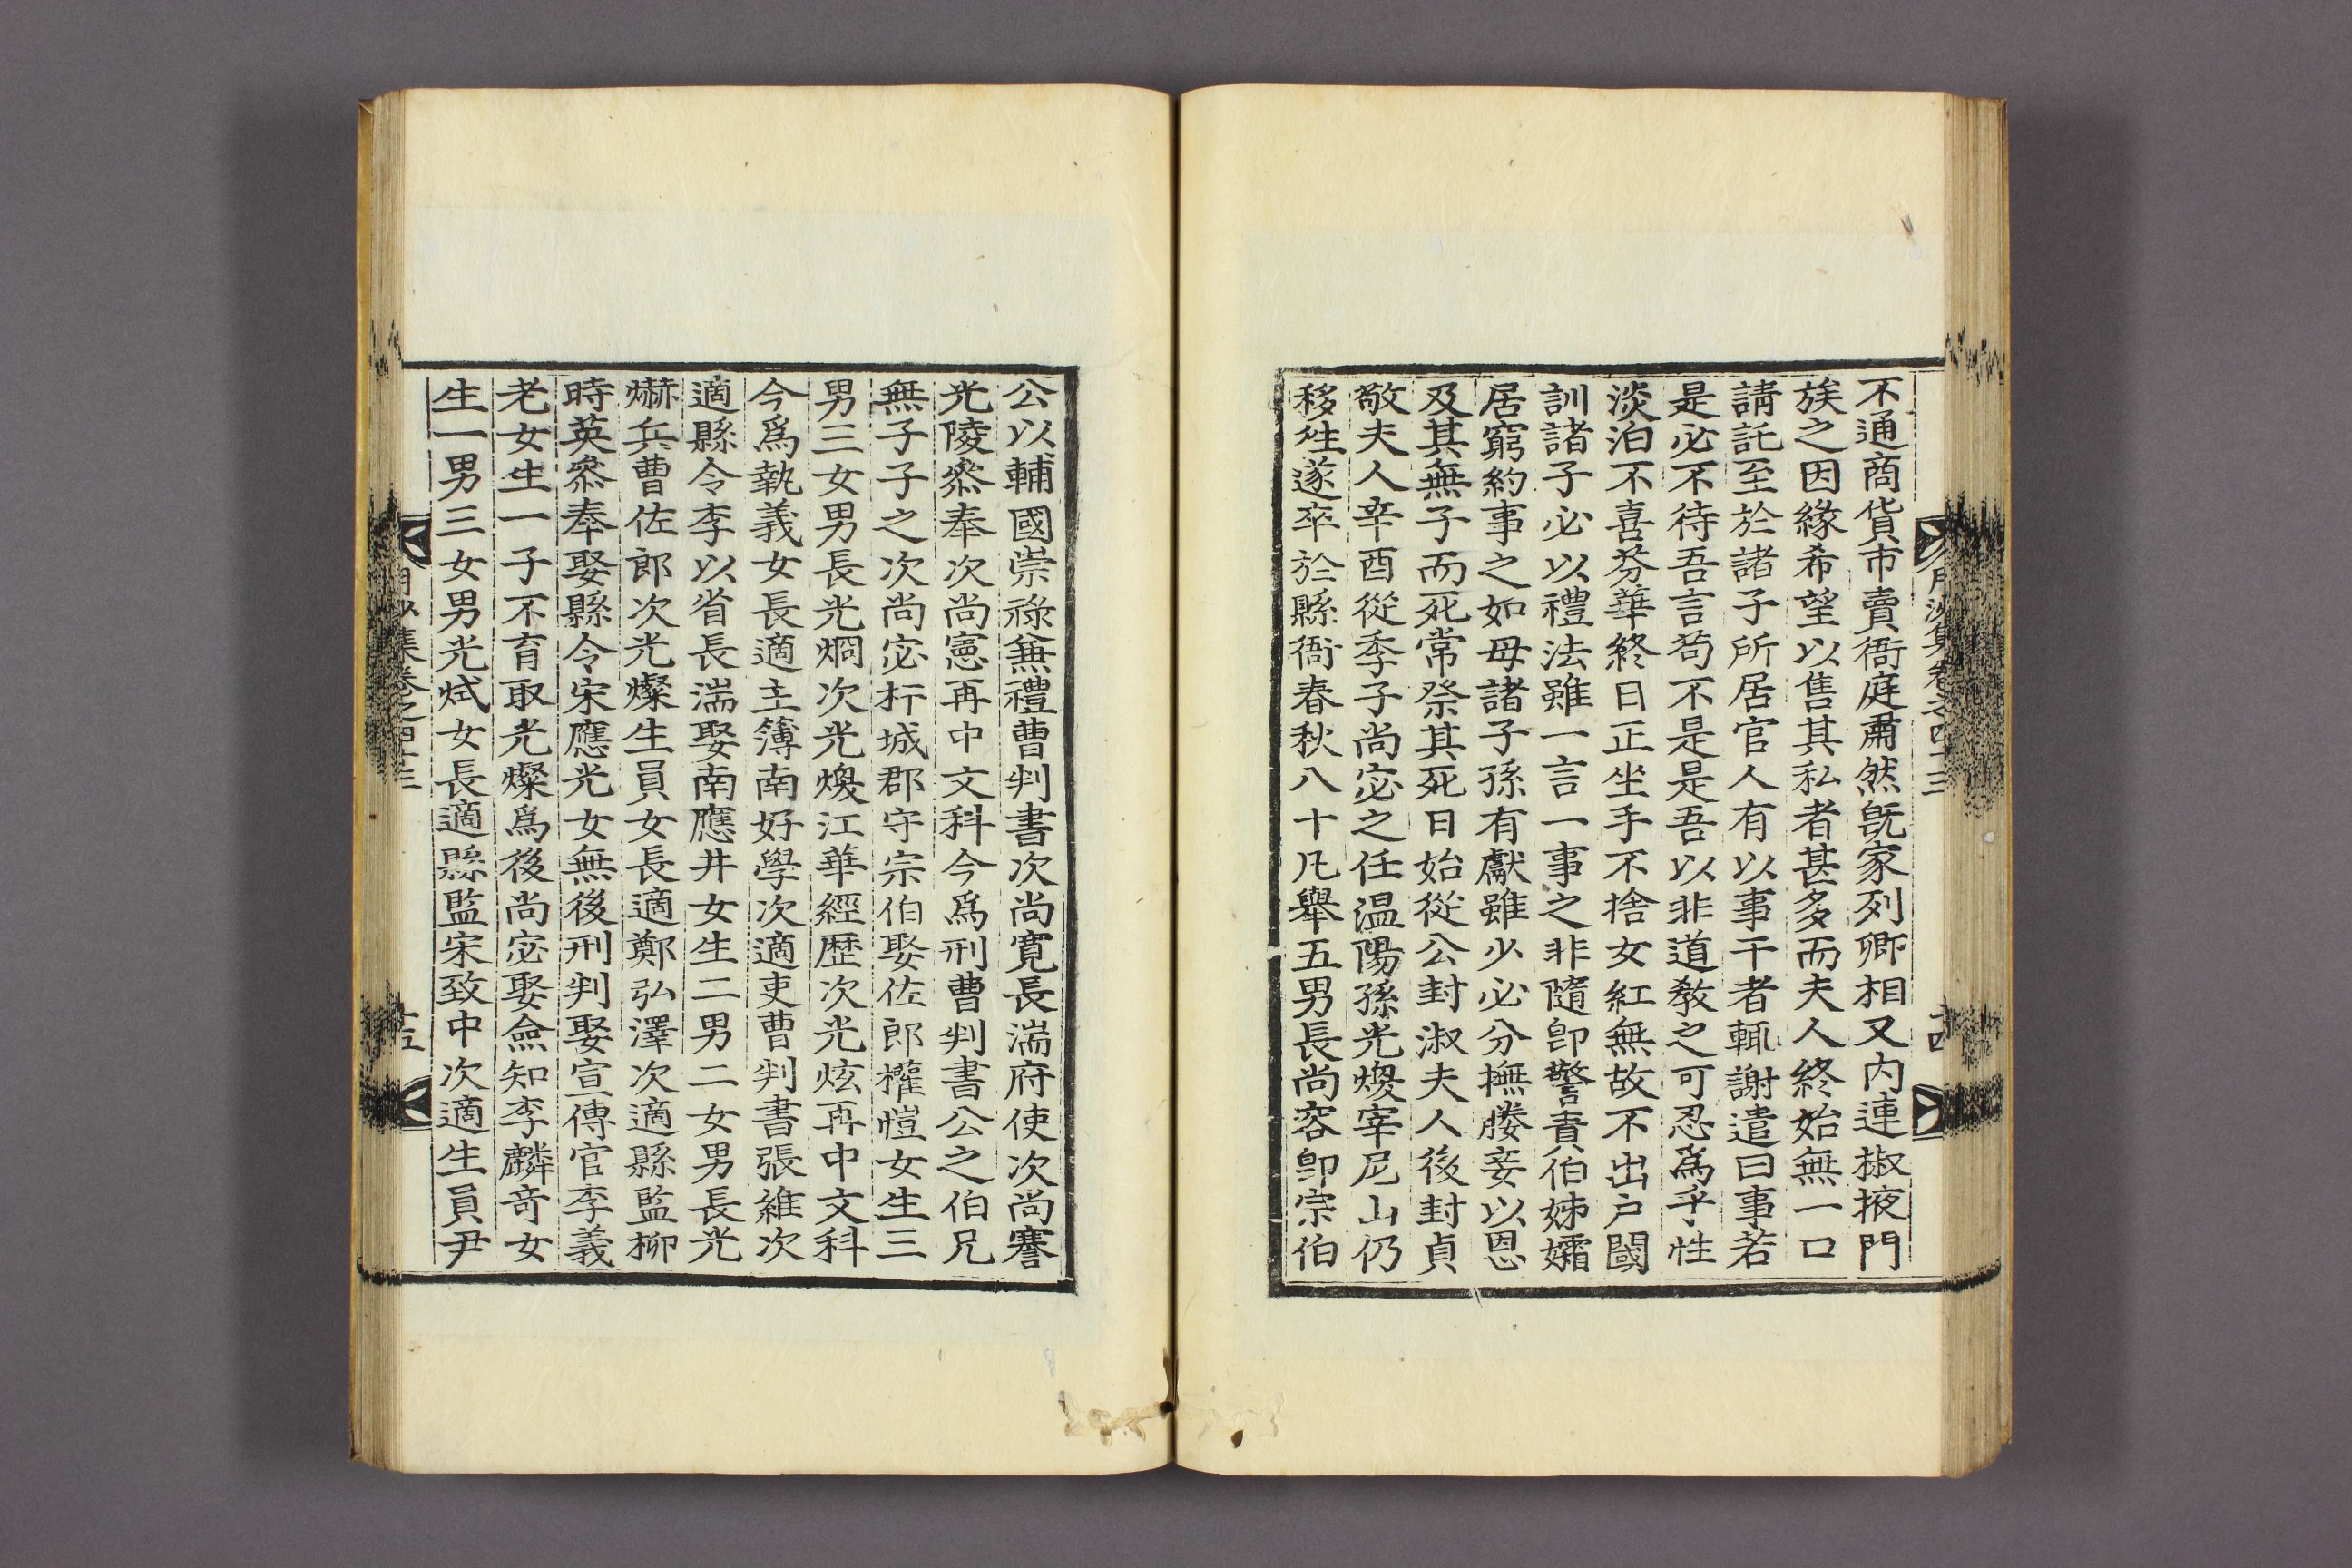 不通商貨市賣衙庭肅然旣家列卿相又內連椒掖門
族之因緣希望以售其私者甚多而夫人終始無一口
請託至於諸子所居官人有以事干者輒謝遣曰事若
是必不待吾言苟不是是吾以非道敎之可忍爲乎性
淡泊不喜芬華終日正坐手不捨女紅無故不出戶閾
訓諸子必以禮法雖一言一事之非隨卽警責伯姊孀
居窮約事之如母諸子孫有獻雖少必分撫媵妾以恩
及其無子而死常祭其死日始從公封淑夫人後封貞
敬夫人辛酉從季子尙宓之任温陽孫光煥宰尼山仍
移徃遂卒於縣衙春秋八十凡擧五男長尙容卽宗伯
月沙集卷之四十三
十四
公以輔國崇祿兼禮曹判書次尙寬長湍府使次尙謇
光陵叅奉次尙憲再中文科今爲刑曹判書公之伯兄
無子子之次尙宓杆城郡守宗伯娶佐郎權愷女生三
男三女男長光烱次光煥江華經歷次光炫再中文科
今爲執義女長適主簿南好學次適吏曹判書張維次
適縣令李以省長湍娶南應井女生二男二女男長光
爀兵曹佐郎次光燦生員女長適鄭弘澤次適縣監柳
時英叅奉娶縣令宋應光女無後刑判娶宣傳官李義
老女生一子不育取光燦爲後尙宓娶僉知李麟奇女
生一男三女男光烒女長適縣監宋致中次適生員尹
月沙集卷之四十三
十五